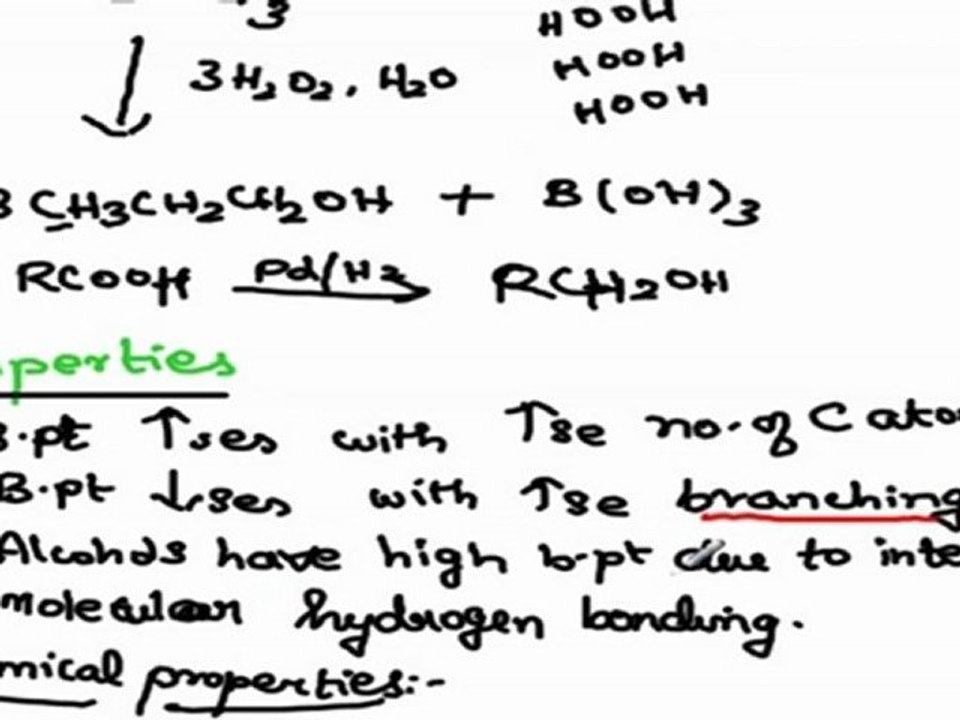 3
HOOH
HOOH
3H2O2, H2O
HOOH
3 CH3CH2CH2OH + B(OH)3
RCOOH Pd/H2 → RCH2OH
perties
B.pt ↑ses with ↑se no. of C ato
B.pt ↓ses with ↑se branching
Alcohols have high b.pt due to inte
molecular hydrogen bonding.
mical properties:-